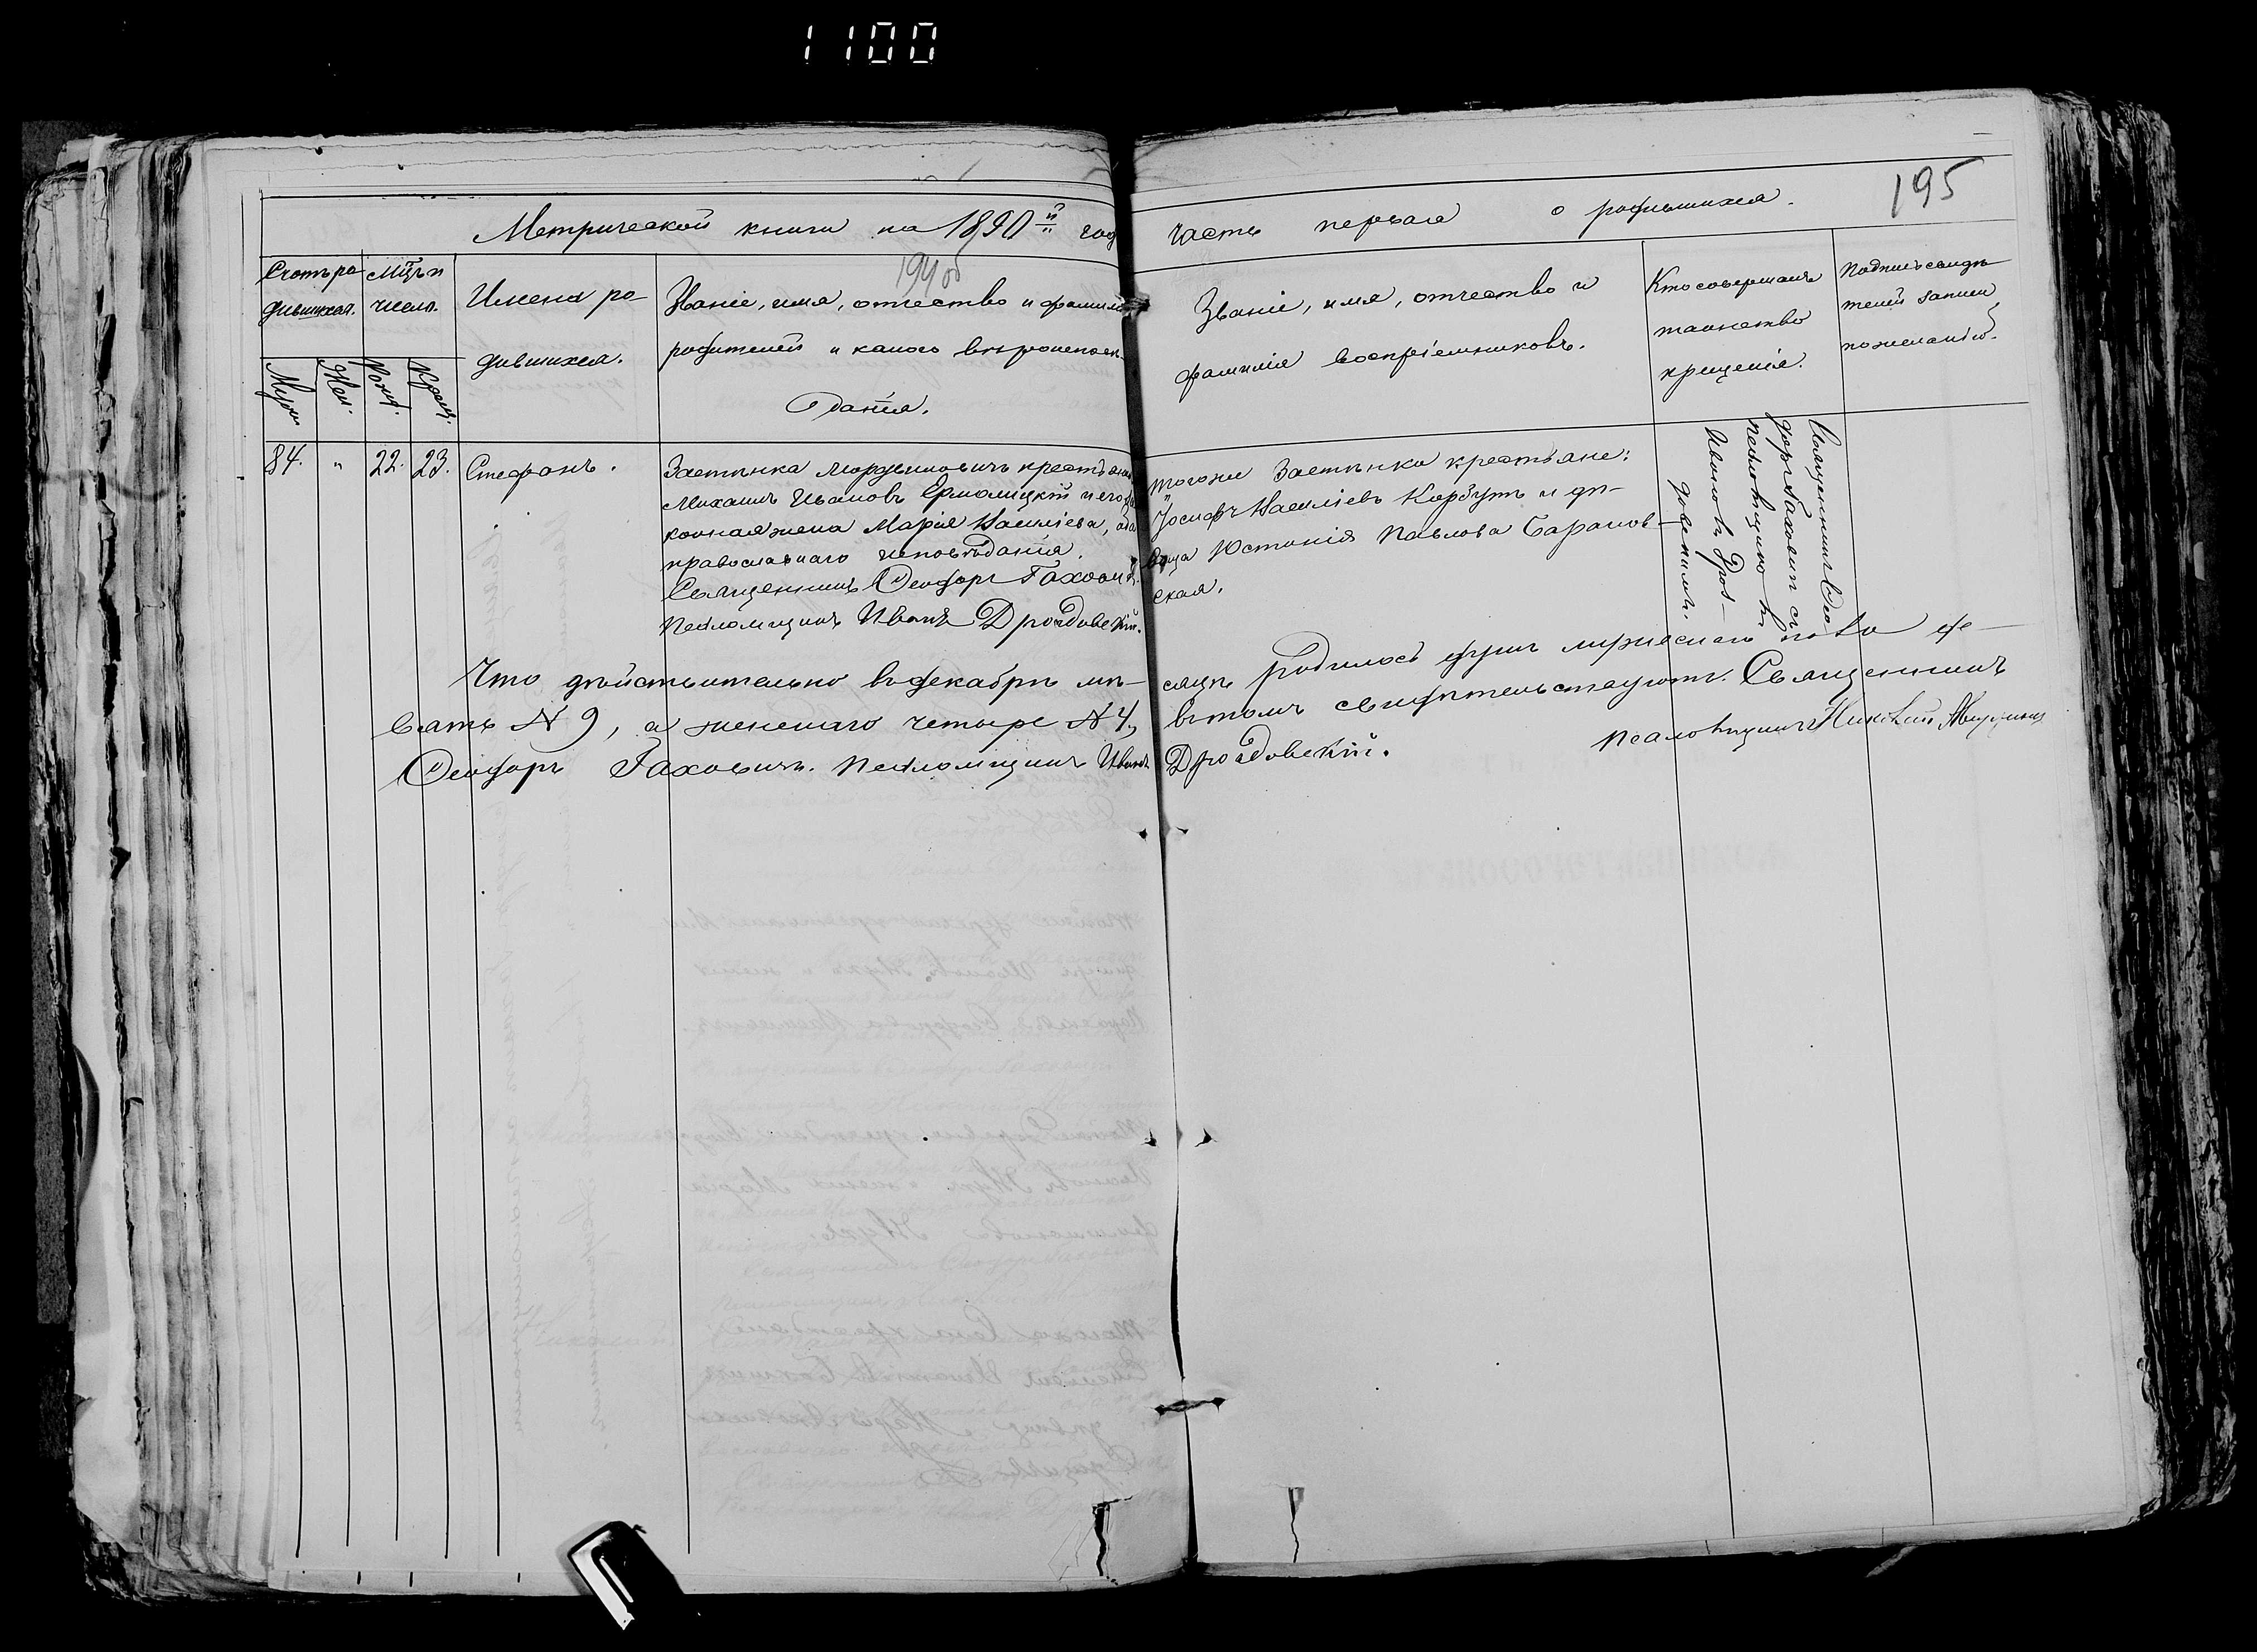 1100
195
Метрической книги на 1890й год часть первая о родившихся.
194об
Счетъ ро-
дившихся.
Муж.
Жен.
Мѣсяцъ и
число.
Рожд.
Крещ.
Имена ро-
дившихся.
Званіе, имя, отчество и фамилія
родителей и какого вѣроисповѣ-
данія.
Званіе, имя, отчество и
фамилія воспріемниковъ.
Кто совершалъ
таинство
крещенія.
Подпись свидѣ-
телей записи
по желанію.
84. " 22. 23. Стефанъ.
Застѣнка крестьянинъ
Михаилъ Ивановъ Ермолицкій и его за-
конная жена Марія Василіева, оба
православнаго исповѣданія.
Священникъ Ѳеодоръ Гаховичъ.
Псаломщикъ Иванъ Дроздовскій.
того же Застѣнка крестьяне:
Іосифъ Василіевъ Корбутъ и дѣ-
вица Юстинія Павлова Баранов-
ская.
Священникъ Ѳео-
доръ Гаховичъ съ
псаломщикомъ
Иваномъ Дроз-
довскимъ.
Что дѣйствительно въ декабрѣ мѣ- сяцѣ родилось душъ мужескаго пола де-
вять № 9, а женскаго четыре № 4, въ томъ свидѣтельствуютъ. Священникъ
Ѳеодоръ Гаховичъ. Псаломщикъ Иванъ Дроздовскій. Псаломщикъ Николай